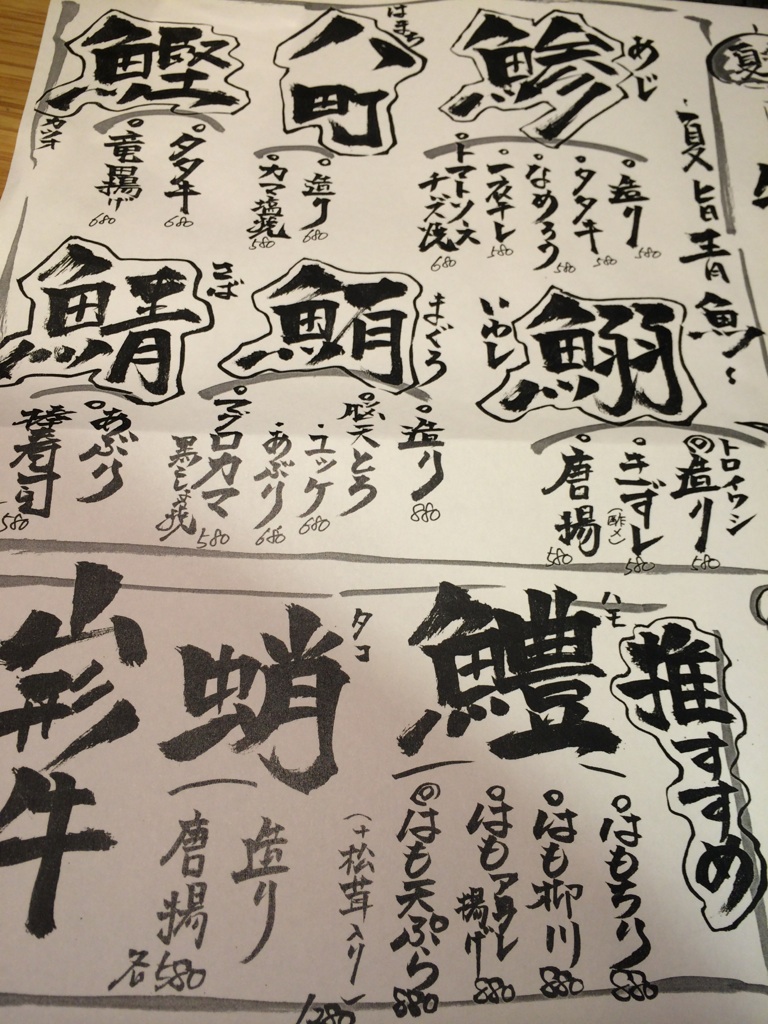 夏旨青魚
あじ
鯵
造り 580
タタキ 580
なめろう 580
一夜干し 580
トマトソース
チーズ焼 680
はまち
八町
造り 680
カマ塩焼 580
カツオ
鰹
タタキ 680
竜田揚げ 680
いわし
鰯
トロイワシ
造り 580
きずし(酢〆) 580
唐揚 580
まぐろ
鮪
造り 880
脳天とろ
ユッケ 680
あぶり 680
マグロカマ
黒こしょう焼 580
さば
鯖
あぶり
棒寿司 580
推すすめ
ハモ
鱧
はもちり 880
はも柳川 880
はも
揚げ 880
はも天ぷら 880
(+松茸入り) 1280
タコ
蛸
造り
唐揚
各580
山形牛